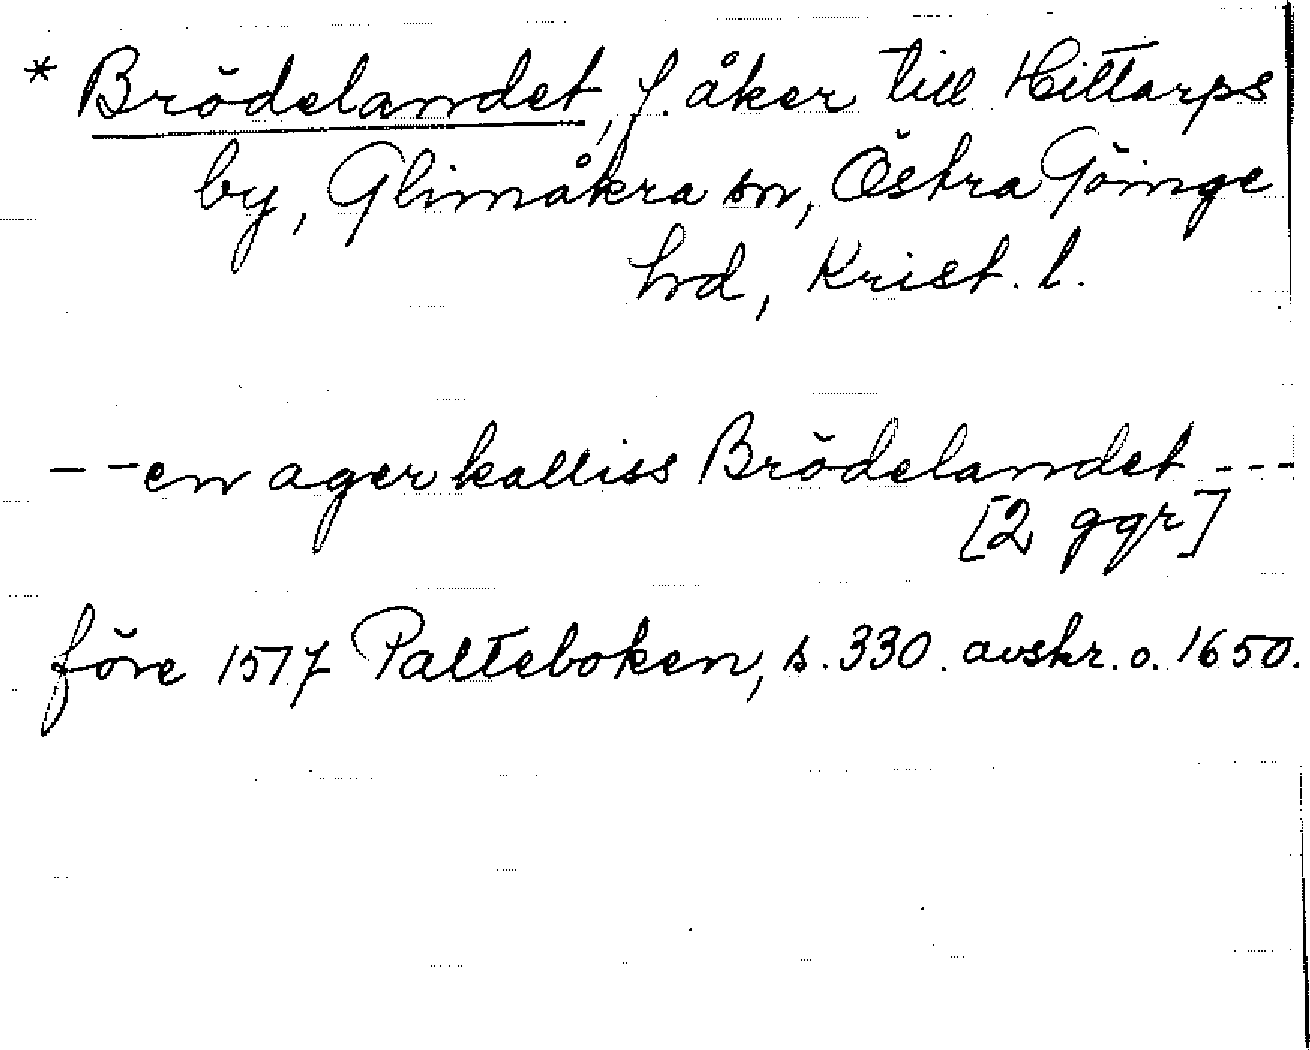 * Brödelandet, f. åker till Hittarps
by, Glimåkra sn, Östra Göinge
hd, Krist. l.
- - en ager kalliss Brödelandet - - -
[2 ggr]
före 1517 Palteboken, s. 330. avskr. o. 1650.